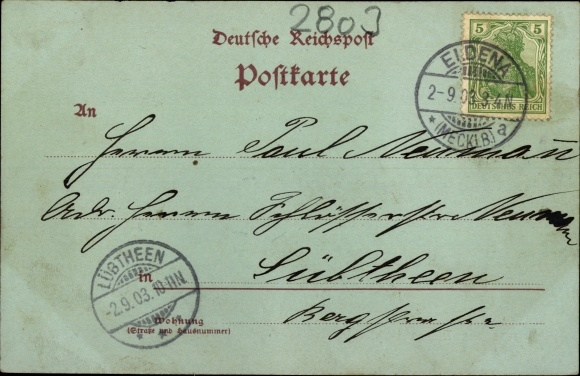 2803
Deutsche Reichspost
Postkarte
5 5
DEUTSCHES REICH
ELDENA
2-9.03.3-4N.
* (MECKLB) a
An
Herrn Paul Neumann
Adr. Herrn Schlossermstr Neumann
in Lübtheen
LÜBTHEEN
-2.9.03.10-11N.
* * *
Wohnung
(Straße und Hausnummer)
Bergstrasse